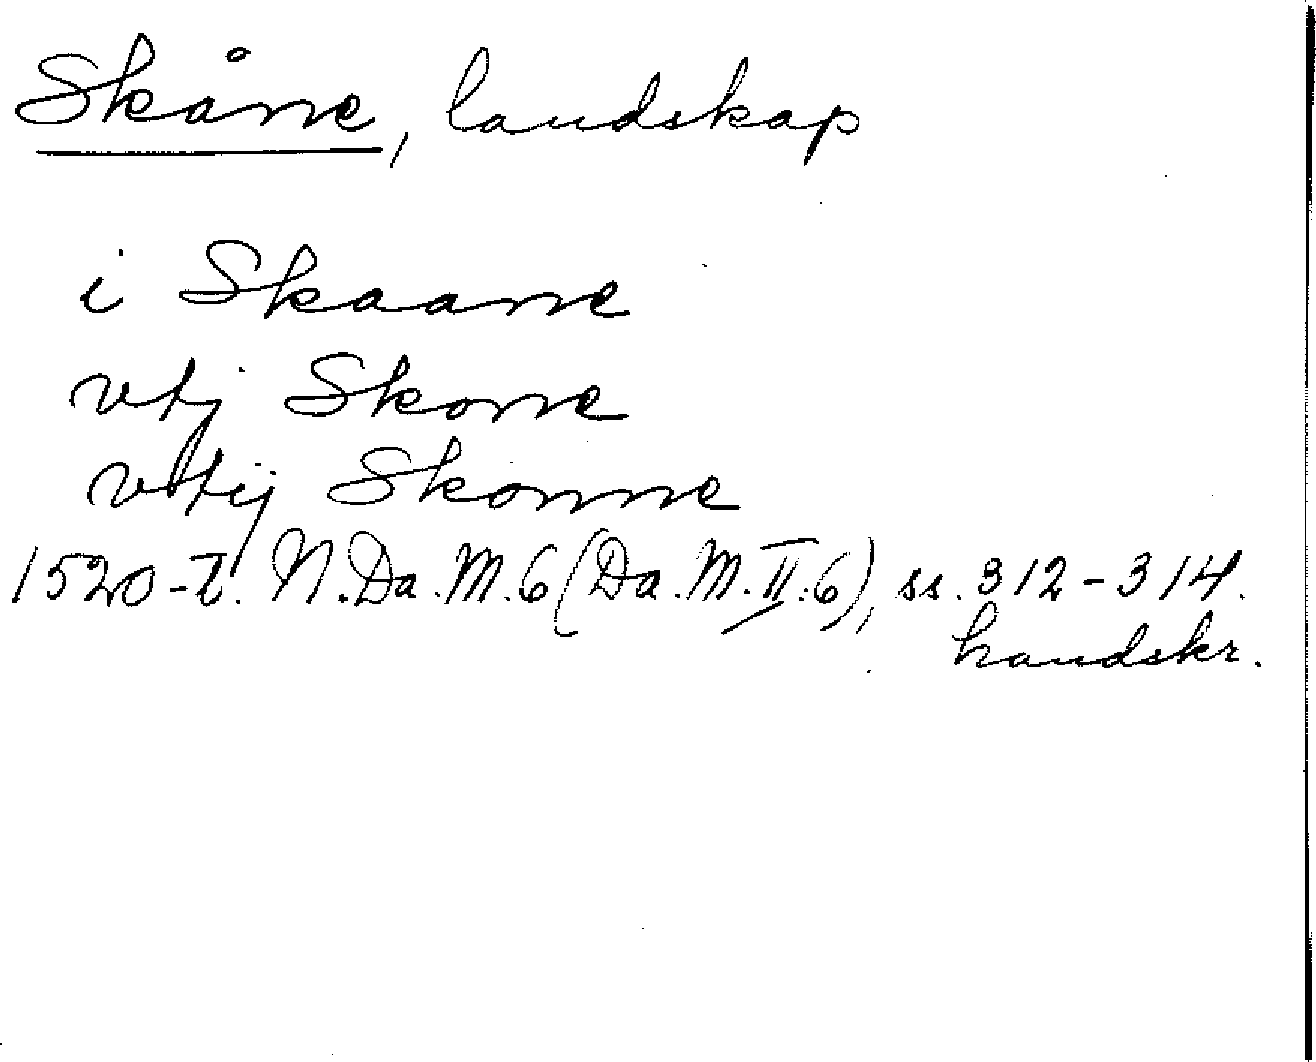 Skåne, landskap
i Skaane
vtj Skone
vttij Skonne
1520-t. N.Da.M.6 (Da.M.II:6), ss. 312-314.
handskr.